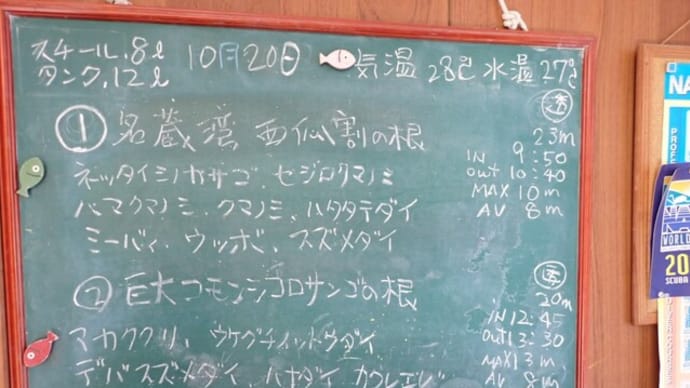 スチール.8ℓ 10月20日 気温 28℃ 水温 27℃
タンク.12ℓ
透
① 名蔵湾 西仏割の根 23m
IN 9:50
ネッタイミノカサゴ、セジロクマノミ out 10:40
MAX 10m
ハマクマノミ、クマノミ、ハタタテダイ AV 8m
ミーバイ、ウツボ、スズメダイ
透
② 巨大コモンシコロサンゴの根 20m
IN 12:45
マカククリ、ウケグチイットウダイ out 13:30
MAX 13m
デバスズメダイ、ハナダイ カクレエビ AV 8m
NA
PROFE
WORLD
20
SCUBA